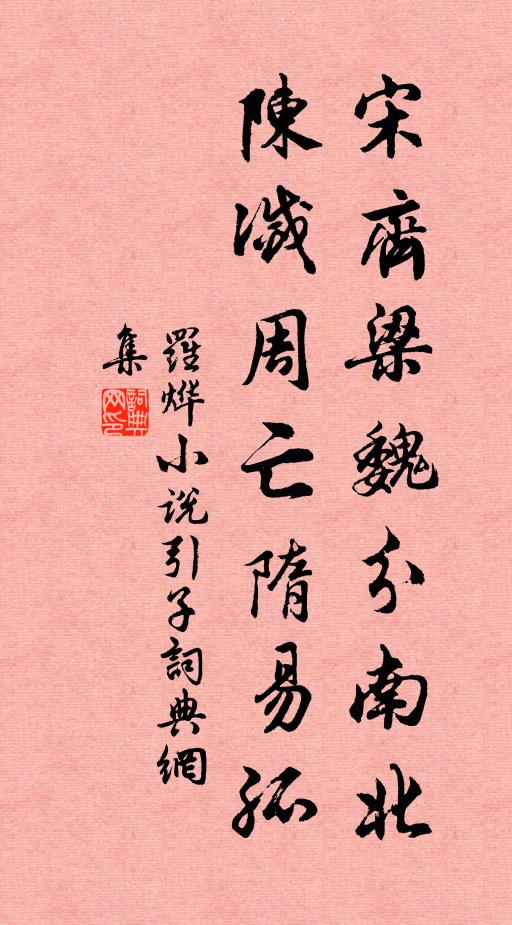 宋齊梁魏分南北
陳滅周亡隋易孤
羅燁小说引子詞典網
集
詞典
网印